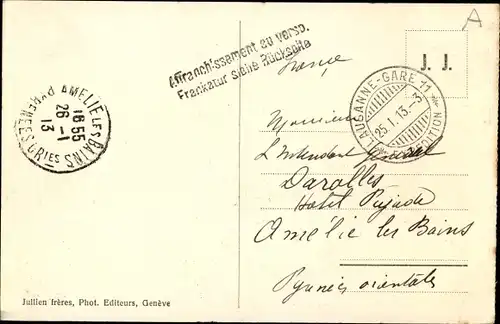 A
Affranchissement au verso.
Frankatur siehe Rückseite
France
J. J.
LAUSANNE-GARE 11
25.I.13.-3
AMELIE LES BAINS
16 55
26 -1
13
PYRENEES ORIES
Monsieur
L'Intendant Général
Darolles
Hotel Pujade
Amélie les Bains
Pyrénées orientales
Jullien frères, Phot. Editeurs, Genève